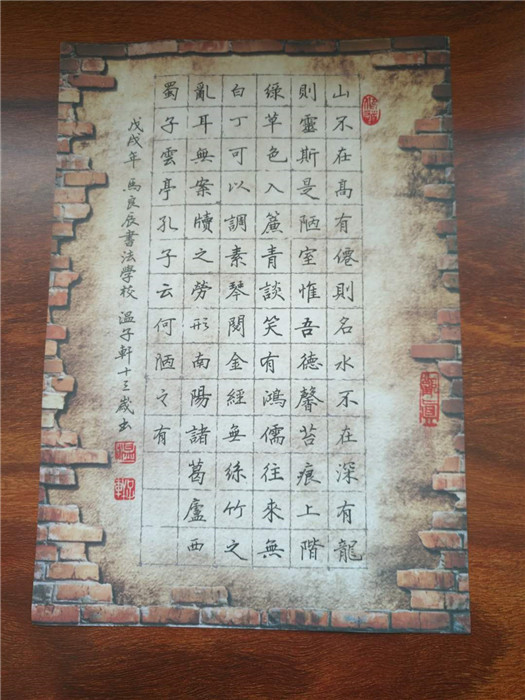 山不在高有僊則名水不在深有龍
則靈斯是陋室惟吾德馨苔痕上階
綠草色入簾青談笑有鴻儒往來無
白丁可以調素琴閱金經無絲竹之
亂耳無案牘之勞形南陽諸葛廬西
蜀子雲亭孔子云何陋之有
戊戌年 馬良辰書法學校 溫子軒十三歲書